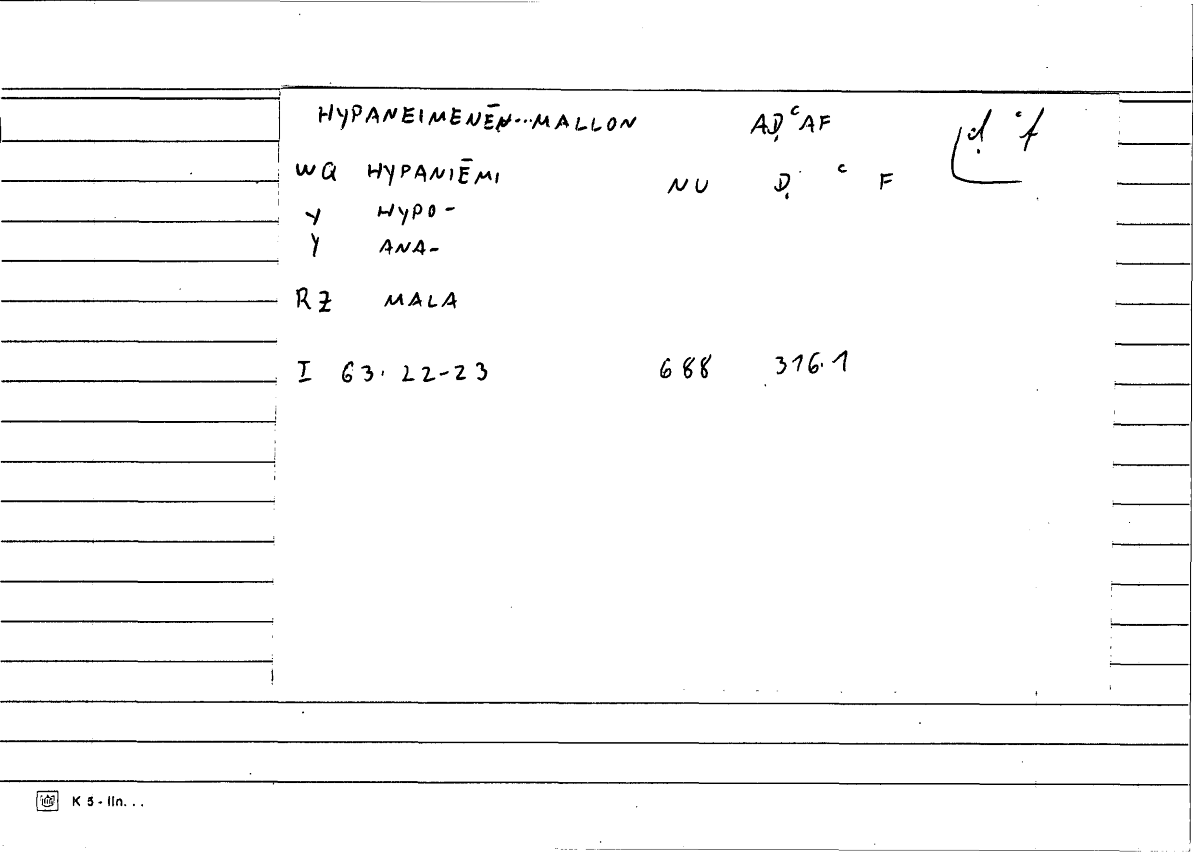 HYPANEIMENĒN...MALLON AḌᶜAF ḍ ᶜf
WQ HYPANIĒMI NU Ḍ ᶜ F
Y HYPO-
Y ANA-
RZ MALA
I 63. 22-23 688 316.1
K 5 - lin. . .